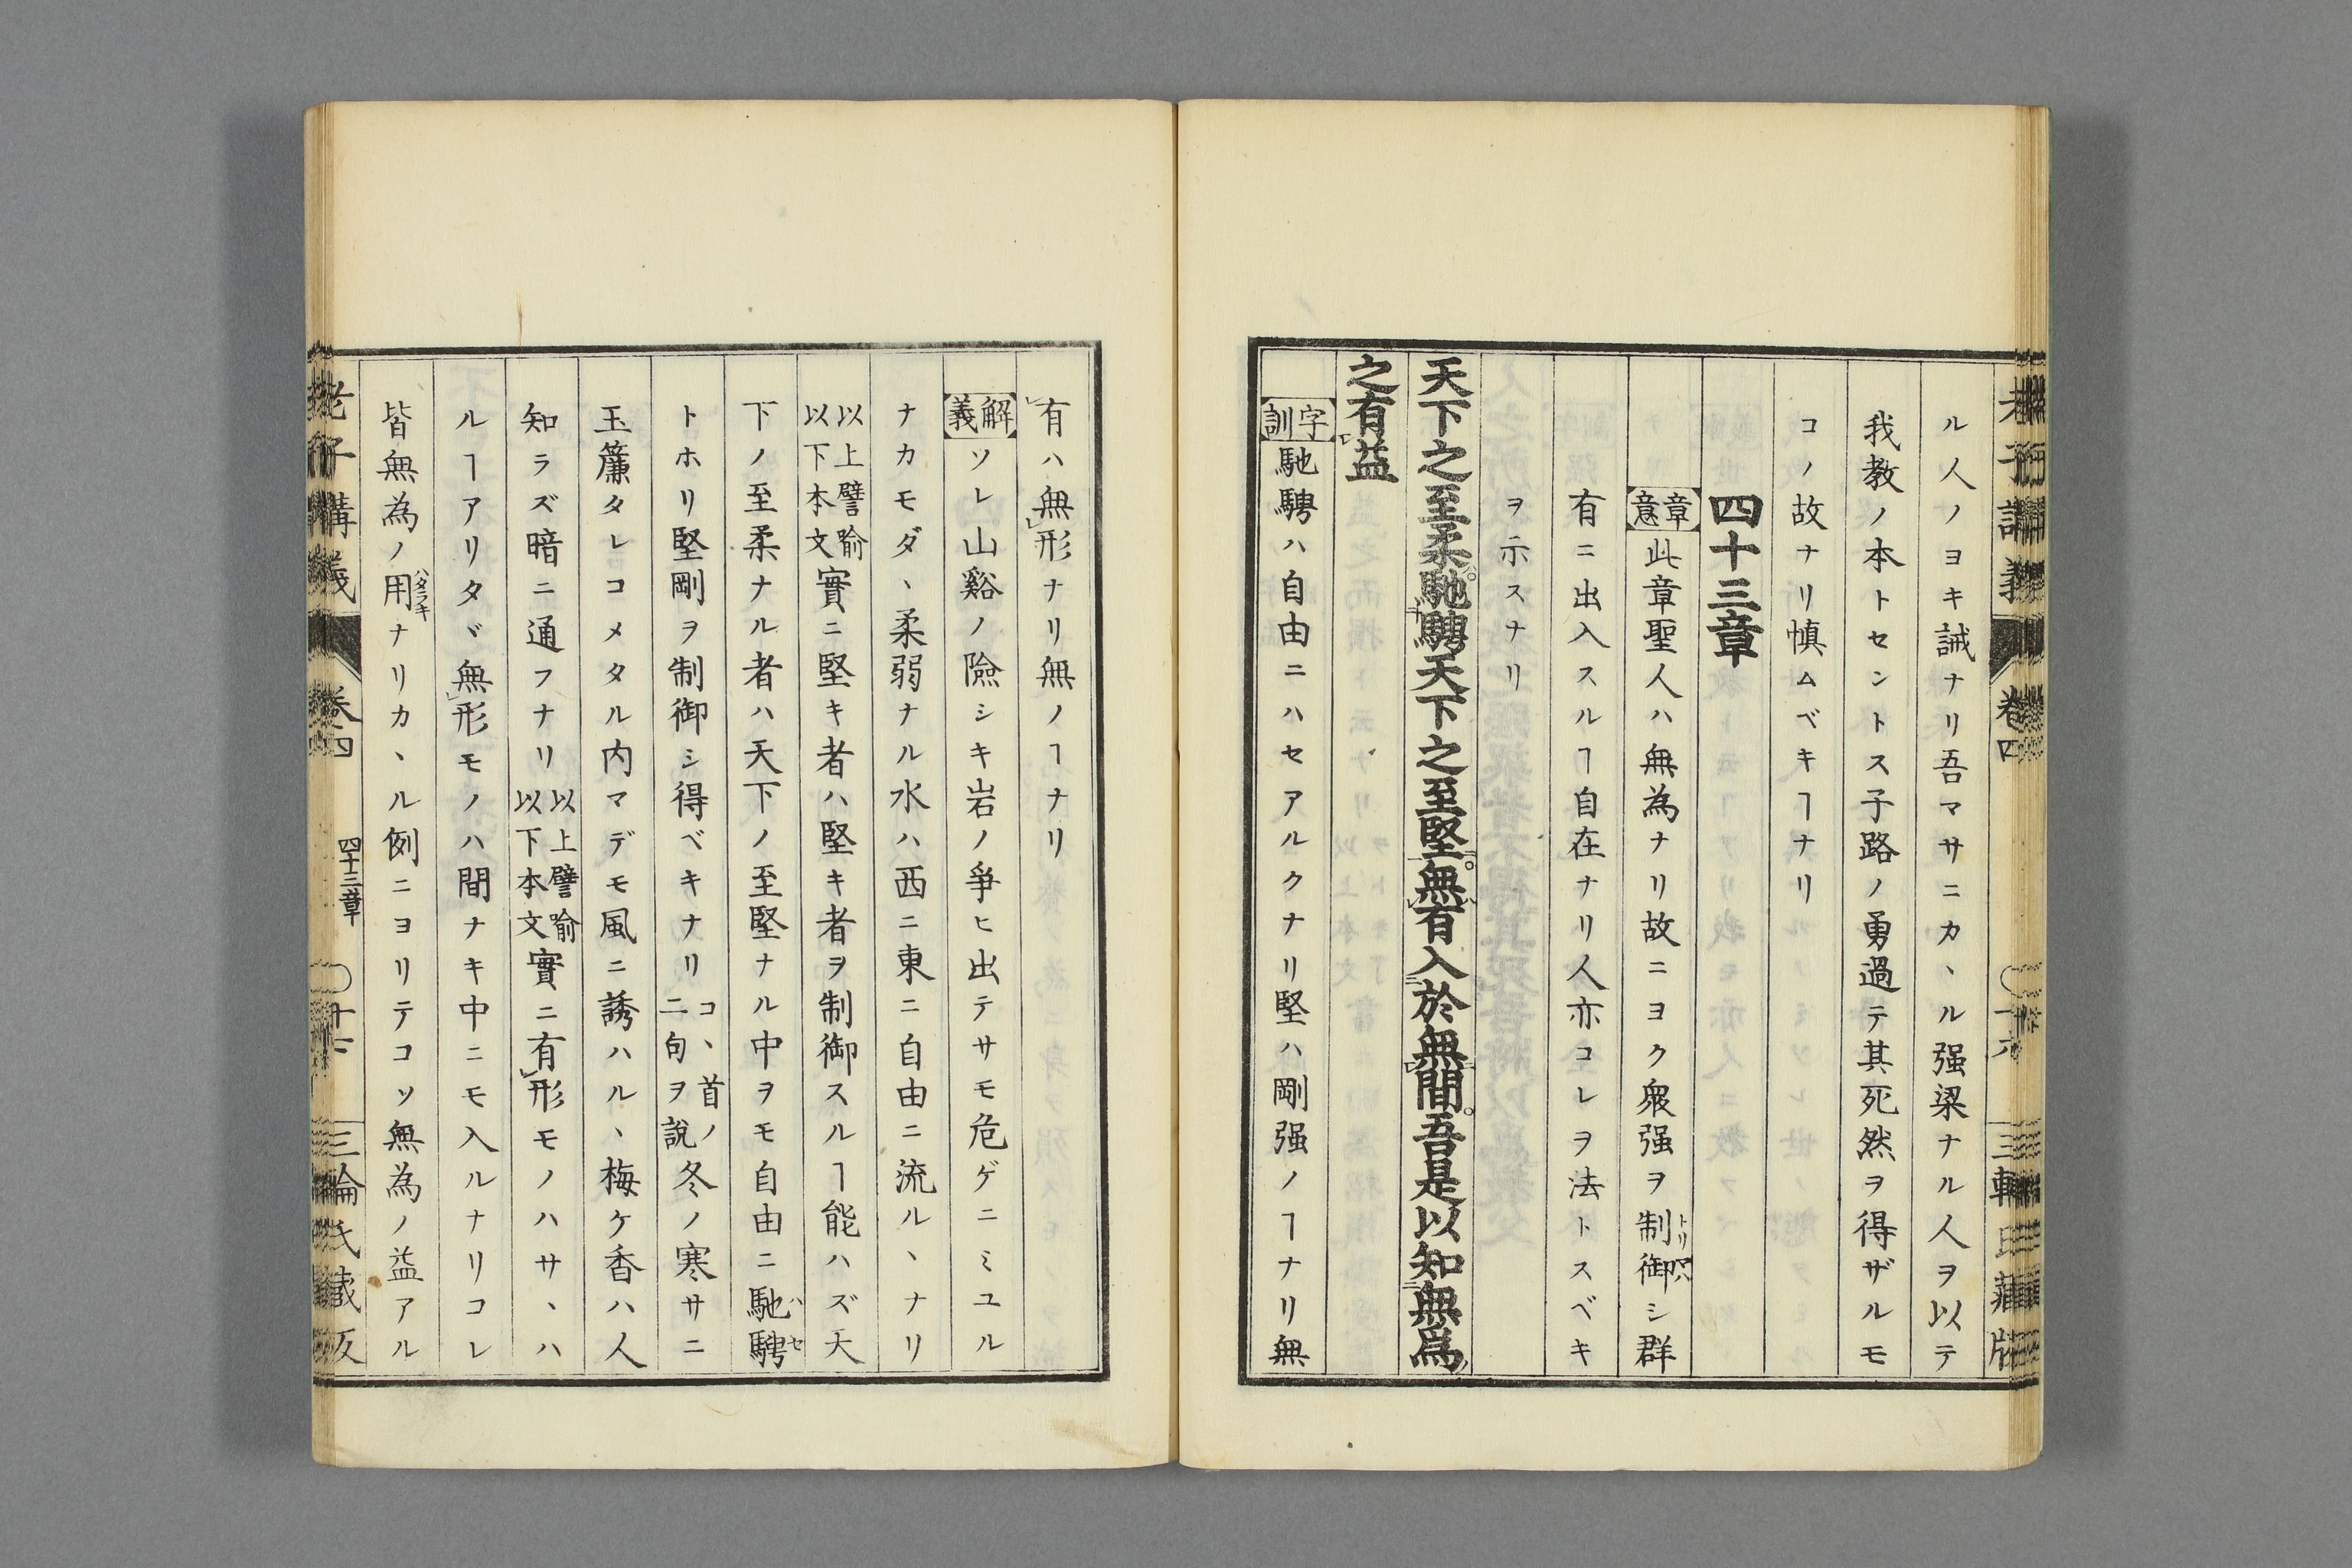 ル人ノヨキ誡ナリ吾マサニカヽル强梁ナル人ヲ以テ
我教ノ本トセントス子路ノ勇過テ其死然ヲ得ザルモ
コノ故ナリ慎ムベキヿナリ
四十三章
章意 此章聖人ハ無為ナリ故ニヨク衆强ヲ制御シ群
有ニ出入スルヿ自在ナリ人亦コレヲ法トスベキ
ヲ示スナリ
天下之至柔馳騁天下之至堅無有入於無間吾是以知無爲
之有益
字訓 馳騁ハ自由ニハセアルクナリ堅ハ剛强ノヿナリ無
有ハ無形ナリ無ノヿナリ
解義 ソレ山谿ノ險シキ岩ノ爭ヒ出テサモ危ゲニミユル
ナカモダヽ柔弱ナル水ハ西ニ東ニ自由ニ流ルヽナリ
以上譬喩以下本文實ニ堅キ者ハ堅キ者ヲ制御スルヿ能ハズ天
下ノ至柔ナル者ハ天下ノ至堅ナル中ヲモ自由ニ馳騁
トホリ堅剛ヲ制御シ得ベキナリコヽ首ノ二句ヲ說冬ノ寒サニ
玉簾タレコメタル内マデモ風ニ誘ハルヽ梅ケ香ハ人
知ラズ暗ニ通フナリ以上譬喩以下本文實ニ有形モノハサヽハ
ルヿアリタヾ無形モノハ間ナキ中ニモ入ルナリコレ
皆無為ノ用ナリカヽル例ニヨリテコソ無為ノ益アル
老子講義 卷四 四十三章 三輪氏藏版